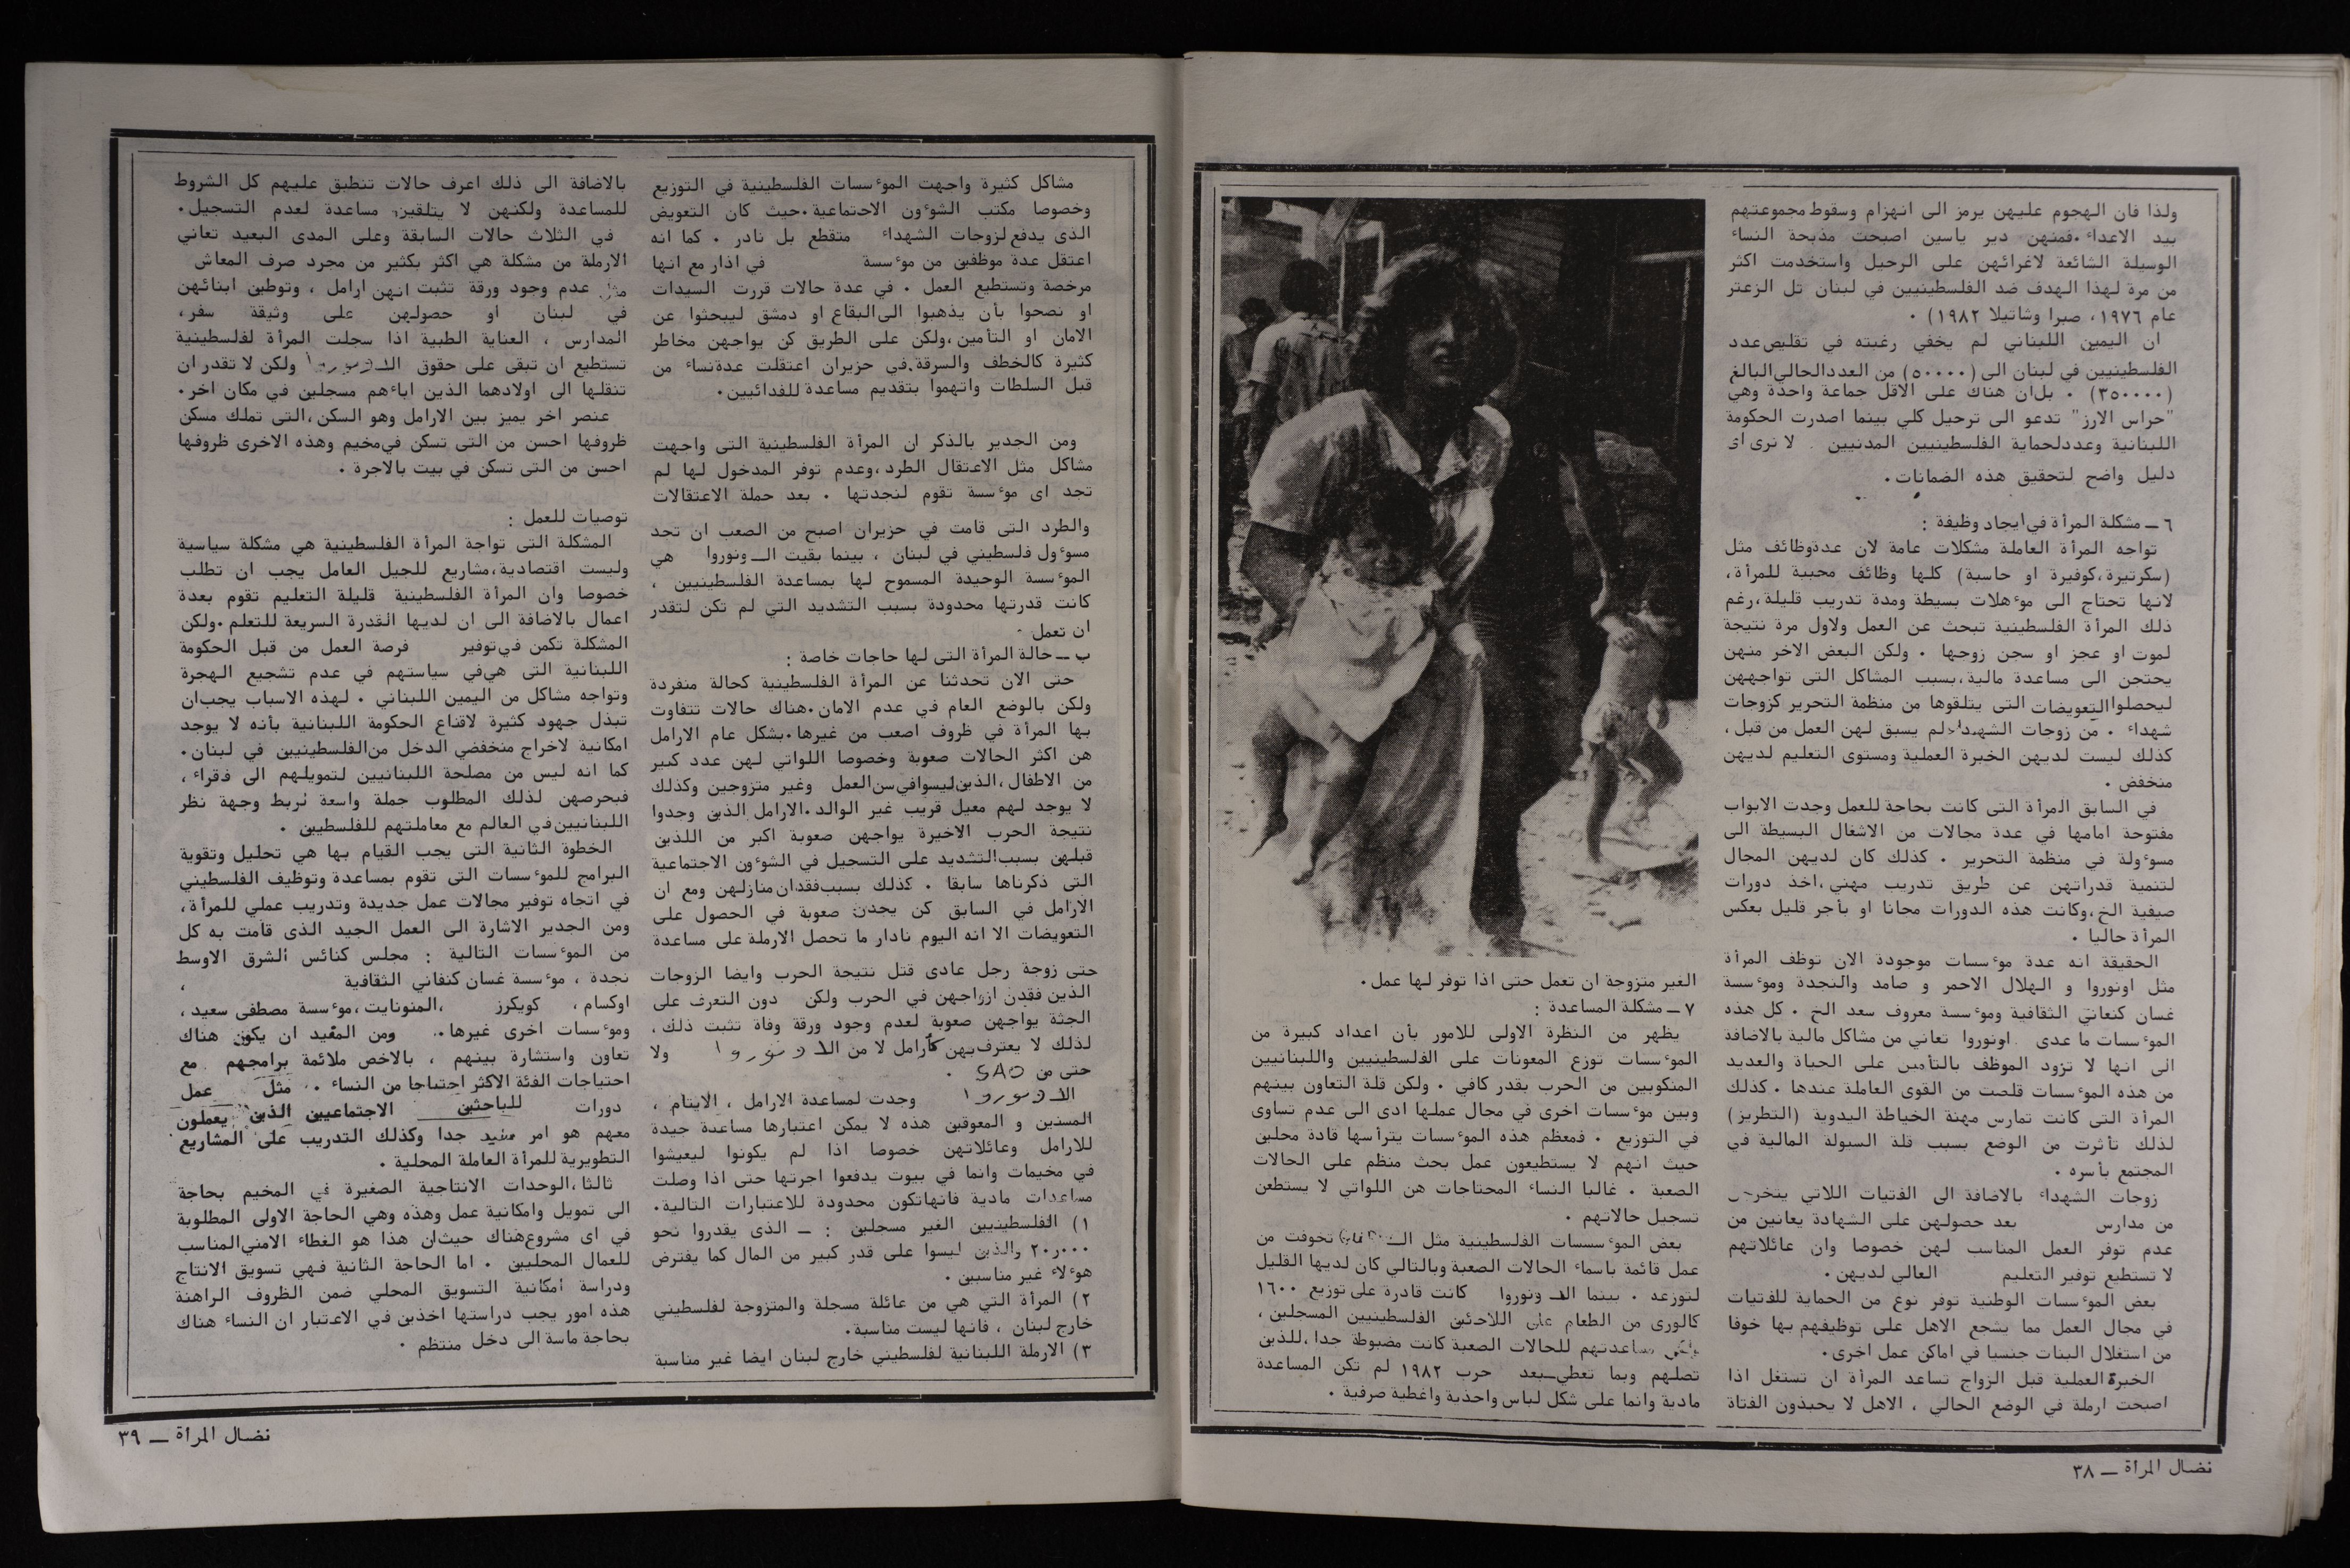 ولذا فان الهجوم عليهن يرمز الى انهزام وسقوط مجموعتهم
بيد الاعداء .فمنهن دير ياسين اصبحت مذبحة النساء
الوسيلة الشائعة لاغرائهن على الرحيل واستخدمت اكثر
من مرة لهذا الهدف ضد الفلسطينيين في لبنان تل الزعتر
عام ١٩٧٦، صبرا وشاتيلا ١٩٨٢) .
ان اليمين اللبناني لم يخفي رغبته في تقليص عدد
الفلسطينيين في لبنان الى (٥٠٠٠٠) من العدد الحالي البالغ
(٣٥٠٠٠٠) . بل ان هناك على الاقل جماعة واحدة وهي
"حراس الارز" تدعو الى ترحيل كلي بينما اصدرت الحكومة
اللبنانية وعدد لحماية الفلسطينيين المدنيين . لا نرى اى
دليل واضح لتحقيق هذه الضمانات .
٦ ــ مشكلة المرأة في ايجاد وظيفة :
تواجه المرأة العاملة مشكلات عامة لان عدة وظائف مثل
(سكرتيرة ،كوفيرة او حاسبة) كلها وظائف محببة للمرأة ،
لانها تحتاج الى موءهلات بسيطة ومدة تدريب قليلة ،رغم
ذلك المرأة الفلسطينية تبحث عن العمل ولاول مرة نتيجة
لموت او عجز او سجن زوجها . ولكن البعض الاخر منهن
يحتجن الى مساعدة مالية ،بسبب المشاكل التى تواجههن
ليحصلوا التعويضات التى يتلقوها من منظمة التحرير كزوجات
شهداء . من زوجات الشهداء لم يسبق لهن العمل من قبل ،
كذلك ليست لديهن الخبرة العملية ومستوى التعليم لديهن
منخفض .
في السابق المرأة التى كانت بحاجة للعمل وجدت الابواب
مفتوحة امامها في عدة مجالات من الاشغال البسيطة الى
مسوءولة في منظمة التحرير . كذلك كان لديهن المجال
لتنمية قدراتهن عن طريق تدريب مهني ،اخذ دورات
صيفية الخ ،وكانت هذه الدورات مجانا او بأجر قليل بعكس
المرأة حاليا .
الحقيقة انه عدة موءسسات موجودة الان توظف المرأة
مثل اونوروا و الهلال الاحمر و صامد والنجدة وموءسسة
غسان كنعاني الثقافية وموءسسة معروف سعد الخ . كل هذه
الموءسسات ما عدى اونوروا تعاني من مشاكل مالية بالاضافة
الى انها لا تزود الموظف بالتأمين على الحياة والعديد
من هذه الموءسسات قلصت من القوى العاملة عندها . كذلك
المرأة التى كانت تمارس مهنة الخياطة اليدوية (التطريز)
لذلك تأثرت من الوضع بسبب قلة السيولة المالية في
المجتمع بأسره .
زوجات الشهداء بالاضافة الى الفتيات اللاتي يتخرجن
من مدارس بعد حصولهن على الشهادة يعانين من
عدم توفر العمل المناسب لهن خصوصا وان عائلاتهم
لا تستطيع توفير التعليم العالي لديهن .
بعض الموءسسات الوطنية توفر نوع من الحماية للفتيات
في مجال العمل مما يشجع الاهل على توظيفهم بها خوفا
من استغلال البنات جنسيا في اماكن عمل اخرى .
الخبرة العملية قبل الزواج تساعد المرأة ان تستغل اذا
اصبحت ارملة في الوضع الحالي ، الاهل لا يحبذون الفتاة
الغير متزوجة ان تعمل حتى اذا توفر لها عمل .
٧ ــ مشكلة المساعدة :
يظهر من النظرة الاولى للامور بأن اعداد كبيرة من
الموءسسات توزع المعونات على الفلسطينيين واللبنانيين
المنكوبين من الحرب بقدر كافي . ولكن قلة التعاون بينهم
وبين موءسسات اخرى في مجال عملها ادى الى عدم تساوى
في التوزيع . فمعظم هذه الموءسسات يترأسها قادة محلين
حيث انهم لا يستطيعون عمل بحث منظم على الحالات
الصعبة . غالبا النساء المحتاجات هن اللواتي لا يستطعن
تسجيل حالاتهم .
بعض الموءسسات الفلسطينية مثل الـ تخوفت من
عمل قائمة باسماء الحالات الصعبة وبالتالي كان لديها القليل
لتوزعه . بينما الـ ونوروا كانت قادرة على توزيع ١٦٠٠
كالورى من الطعام على اللاجئين الفلسطينيين المسجلين ،
ولكن مساعدتهم للحالات الصعبة كانت مضبوطة جدا ،للذين
تصلهم وبما تعطي ــبعد حرب ١٩٨٢ لم تكن المساعدة
مادية وانما على شكل لباس واحذية واغطية صرفية .
نضال المرأة ــ ٣٨
مشاكل كثيرة واجهت الموءسسات الفلسطينية في التوزيع
وخصوصا مكتب الشوءون الاجتماعية .حيث كان التعويض
الذى يدفع لزوجات الشهداء متقطع بل نادر . كما انه
اعتقل عدة موظفين من موءسسة في اذار مع انها
مرخصة وتستطيع العمل . في عدة حالات قررت السيدات
او نصحوا بأن يذهبوا الى البقاع او دمشق ليبحثوا عن
الامان او التأمين ،ولكن على الطريق كن يواجهن مخاطر
كثيرة كالخطف والسرقة .في حزيران اعتقلت عدة نساء من
قبل السلطات واتهموا بتقديم مساعدة للفدائيين .
ومن الجدير بالذكر ان المرأة الفلسطينية التى واجهت
مشاكل مثل الاعتقال الطرد ،وعدم توفر المدخول لها لم
تجد اى موءسسة تقوم لنجدتها . بعد حملة الاعتقالات
والطرد التى قامت في حزيران اصبح من الصعب ان تجد
مسوءول فلسطيني في لبنان ، بينما بقيت الـ ونوروا هي
الموءسسة الوحيدة المسموح لها بمساعدة الفلسطينيين ،
كانت قدرتها محدودة بسبب التشديد التي لم تكن لتقدر
ان تعمل .
ب ــ حالة المرأة التى لها حاجات خاصة :
حتى الان تحدثنا عن المرأة الفلسطينية كحالة منفردة
ولكن بالوضع العام في عدم الامان .هناك حالات تتفاوت
بها المرأة في ظروف اصعب من غيرها .بشكل عام الارامل
هن اكثر الحالات صعوبة وخصوصا اللواتي لهن عدد كبير
من الاطفال ،الذين ليسوا في سن العمل وغير متزوجين وكذلك
لا يوجد لهم معيل قريب غير الوالد .الارامل الذين وجدوا
نتيجة الحرب الاخيرة يواجهن صعوبة اكبر من اللذين
قبلهن بسبب التشديد على التسجيل في الشوءون الاجتماعية
التى ذكرناها سابقا . كذلك بسبب فقدان منازلهن ومع ان
الارامل في السابق كن يجدن صعوبة في الحصول على
التعويضات الا انه اليوم نادار ما تحصل الارملة على مساعدة
حتى زوجة رجل عادى قتل نتيجة الحرب وايضا الزوجات
الذين فقدن ازواجهن في الحرب ولكن دون التعرف على
الجثة يواجهن صعوبة لعدم وجود ورقة وفاة تثبت ذلك ،
لذلك لا يعترف بهن كأرامل لا من الاونوروا ولا
حتى من SAO .
الاونوروا وجدت لمساعدة الارامل ، الايتام ،
المسنين و المعوقين هذه لا يمكن اعتبارها مساعدة جيدة
للارامل وعائلاتهن خصوصا اذا لم يكونوا ليعيشوا
في مخيمات وانما في بيوت يدفعوا اجرتها حتى اذا وصلت
مساعدات مادية فانها تكون محدودة للاعتبارات التالية .
١) الفلسطينيين الغير مسجلين : ــ الذى يقدروا نحو
٢٠ر٠٠٠ والذين ليسوا على قدر كبير من المال كما يفترض
هوءلاء غير مناسبين .
٢) المرأة التي هي من عائلة مسجلة والمتزوجة لفلسطيني
خارج لبنان ، فانها ليست مناسبة .
٣) الارملة اللبنانية لفلسطيني خارج لبنان ايضا غير مناسبة
بالاضافة الى ذلك اعرف حالات تنطبق عليهم كل الشروط
للمساعدة ولكنهن لا يتلقين مساعدة لعدم التسجيل .
في الثلاث حالات السابقة وعلى المدى البعيد تعاني
الارملة من مشكلة هي اكثر بكثير من مجرد صرف المعاش
مثل عدم وجود ورقة تثبت انهن ارامل ، وتوطين ابنائهن
في لبنان او حصولهن على وثيقة سفر ،
المدارس ، العناية الطبية اذا سجلت المرأة لفلسطينية
تستطيع ان تبقى على حقوق الاونوروا ولكن لا تقدر ان
تنقلها الى اولادهما الذين اباءهم مسجلين في مكان اخر .
عنصر اخر يميز بين الارامل وهو السكن ،التى تملك مسكن
ظروفها احسن من التى تسكن في مخيم وهذه الاخرى ظروفها
احسن من التى تسكن في بيت بالاجرة .
توصيات للعمل :
المشكلة التى تواجة المرأة الفلسطينية هي مشكلة سياسية
وليست اقتصادية ،مشاريع للجيل العامل يجب ان تطلب
خصوصا وان المرأة الفلسطينية قليلة التعليم تقوم بعدة
اعمال بالاضافة الى ان لديها القدرة السريعة للتعلم .ولكن
المشكلة تكمن في توفير فرصة العمل من قبل الحكومة
اللبنانية التى هي في سياستهم في عدم تشجيع الهجرة
وتواجه مشاكل من اليمين اللبناني . لهذه الاسباب يجب ان
تبذل جهود كثيرة لاقناع الحكومة اللبنانية بأنه لا يوجد
امكانية لاخراج منخفضي الدخل من الفلسطينيين في لبنان .
كما انه ليس من مصلحة اللبنانيين لتمويلهم الى فقراء ،
فبحرصهن لذلك المطلوب جملة واسعة تربط وجهة نظر
اللبنانيين في العالم مع معاملتهم للفلسطيين .
الخطوة الثانية التى يجب القيام بها هي تحليل وتقوية
البرامج للموءسسات التى تقوم بمساعدة وتوظيف الفلسطيني
في اتجاه توفير مجالات عمل جديدة وتدريب عملي للمرأة ،
ومن الجدير الاشارة الى العمل الجيد الذى قامت به كل
من الموءسسات التالية : مجلس كنائس الشرق الاوسط
نجدة ، موءسسة غسان كنفاني الثقافية ،
اوكسام ، كويكرز ،المنونايت ،موءسسة مصطفى سعيد ،
وموءسسات اخرى غيرها . ومن المفيد ان يكون هناك
تعاون واستشارة بينهم ، بالاخص ملائمة برامجهم مع
احتياجات الفئة الاكثر احتياجا من النساء . مثل عمل
دورات للباحثين الاجتماعيين الذين يعملون
معهم هو امر مفيد جدا وكذلك التدريب على المشاريع
التطويرية للمرأة العاملة المحلية .
ثالثا ،الوحدات الانتاجية الصغيرة في المخيم بحاجة
الى تمويل وامكانية عمل وهذه وهي الحاجة الاولى المطلوبة
في اى مشروع هناك حيث ان هذا هو الغطاء الامني المناسب
للعمال المحليين . اما الحاجة الثانية فهي تسويق الانتاج
ودراسة امكانية التسويق المحلي ضمن الظروف الراهنة
هذه امور يجب دراستها اخذين في الاعتبار ان النساء هناك
بحاجة ماسة الى دخل منتظم .
نضال المرأة ــ ٣٩